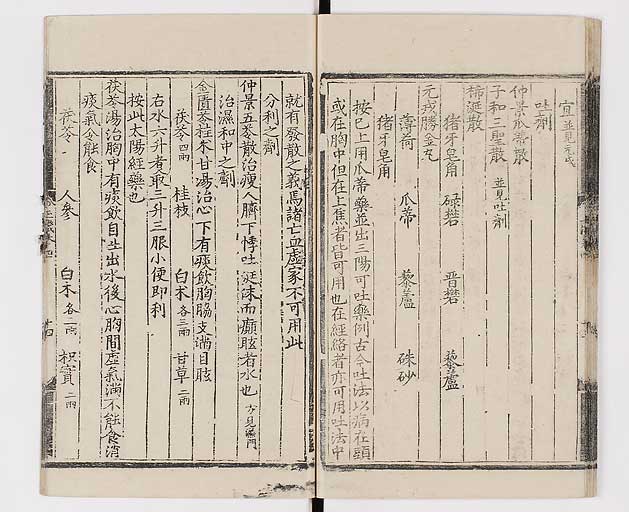 宜 並見元戎
吐劑
仲景瓜蒂散
子和三聖散 並見吐劑
稀涎散
猪牙皂角 碌礬 晋礬 藜蘆
元戎勝金丸
薄荷 瓜蒂 藜蘆 硃砂
猪牙皂角
按已上用瓜蒂藥並出三陽可吐藥例古今吐法以病在頭
或在胸中但在上焦者皆可用也在經絡者亦可用吐法中
就有發散之義焉諸亡血虛家不可用此
分利之劑
仲景五苓散治瘦人臍下悸吐涎沫而癲眩者水也
治濕和中之劑
金匱苓桂朮甘湯治心下有痰飲胸脇支滿目眩
茯苓四兩 桂枝 白朮各三兩 甘草二兩
右水六升煮取三升三服小便即利
按此太陽經藥也
茯苓湯治胸中有痰飲自生出水後心胸間虛氣滿不能食消
痰氣令能食
茯苓 人參 白朮各三兩 枳實二兩